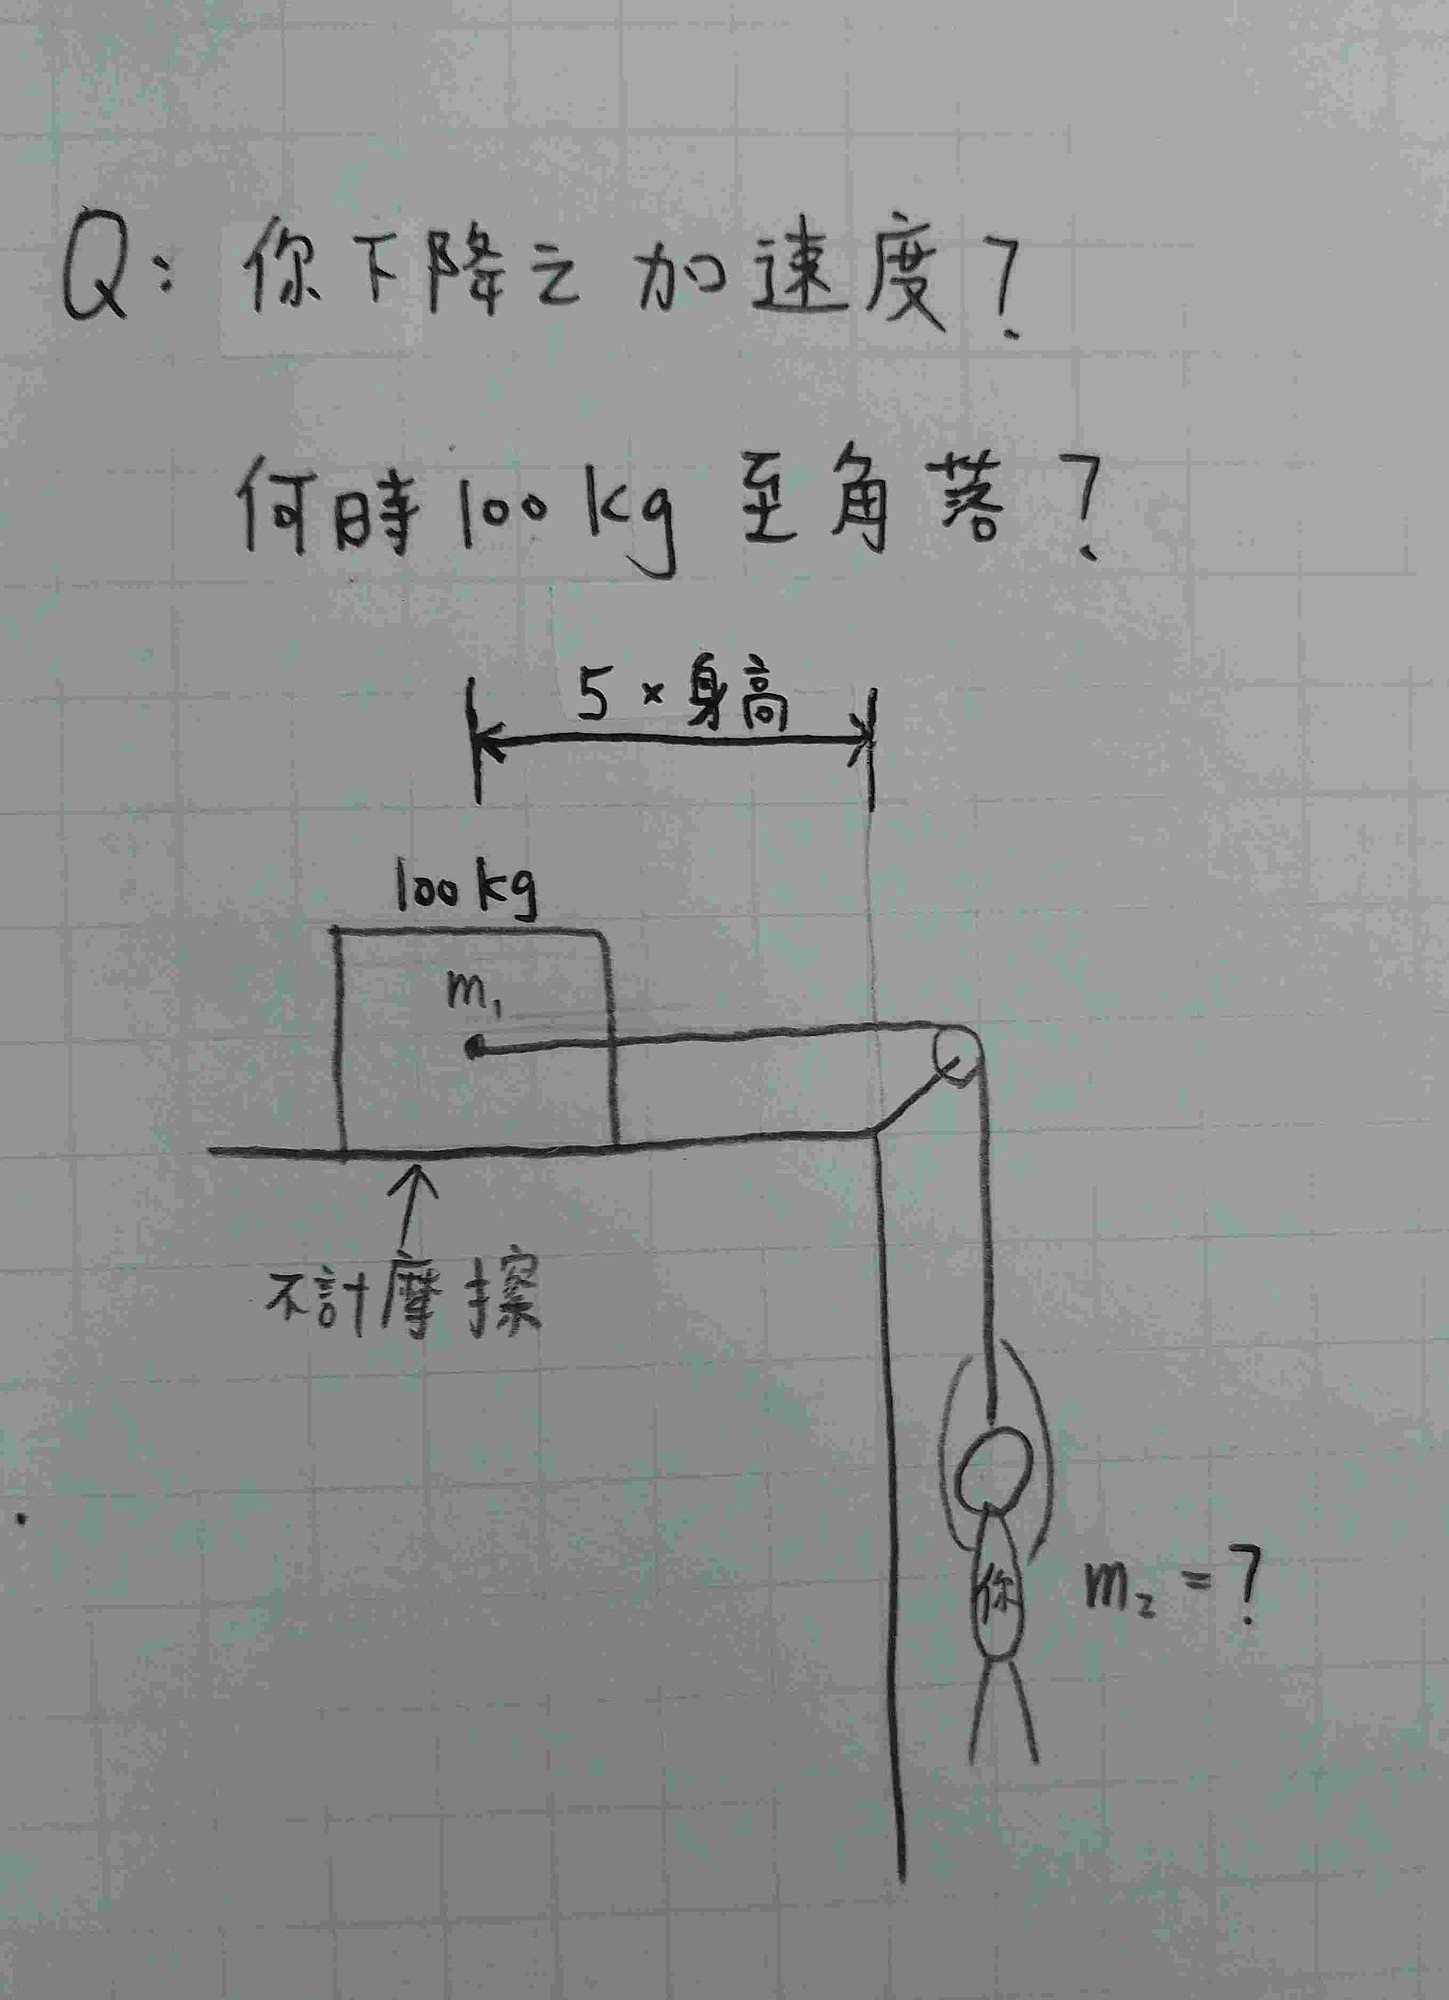 Q: 你下降之加速度?
何時100kg至角落?
5×身高
100kg
m₁
不計摩擦
你
m₂=?